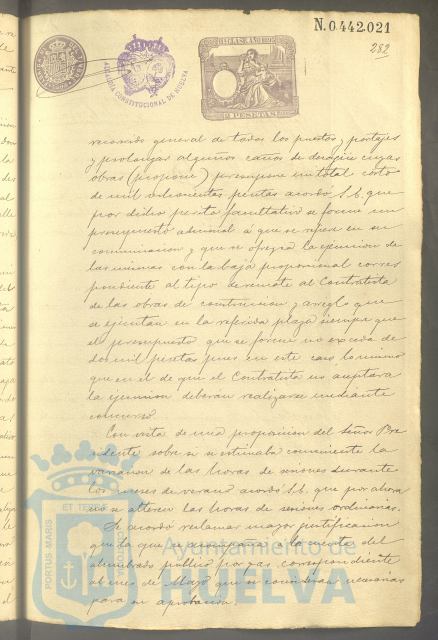 N.0.442.021
282
ALCALDIA CONSTITUCIONAL DE HUELVA
2 PESETAS
recorrido general de todos los puestos y portajes
y prolongar algunos caños de desagüe cuyas
obras (propone) presupone un total costo
de mil ochocientas pesetas acordó S.E. que
por dicho perito facultativo se forme un
presupuesto adicional a que se refiere en su
comunicacion y que se ofrezca la ejecucion de
las mismas con la baja proporcional corres
pondiente al tipo de remate al Contratista
de las obras de construccion y arreglo que
se ejecutan en la referida plaza siempre que
el presupuesto que se forme no exceda de
dos mil pesetas pues en este caso lo mismo
que en el de que el Contratista no aceptara
la ejecucion deberan realizarse mediante
concurso.
Con vista de una proposicion del Señor Pre
sidente sobre si se estimaba conveniente la
variacion de las horas de sesiones durante
los meses de verano acordó S.E. que por ahora
no se alteren las horas de sesiones ordinarias.
Se acordó reclamar mayor justificacion
que la que se acompaña a la cuenta del
alumbrado publico por gas, correspondiente
al mes de Mayo que se considera necesaria
para su aprobacion.
PORTUS MARIS ET TERRAE CUSTODIA
Ayuntamiento de
HUELVA